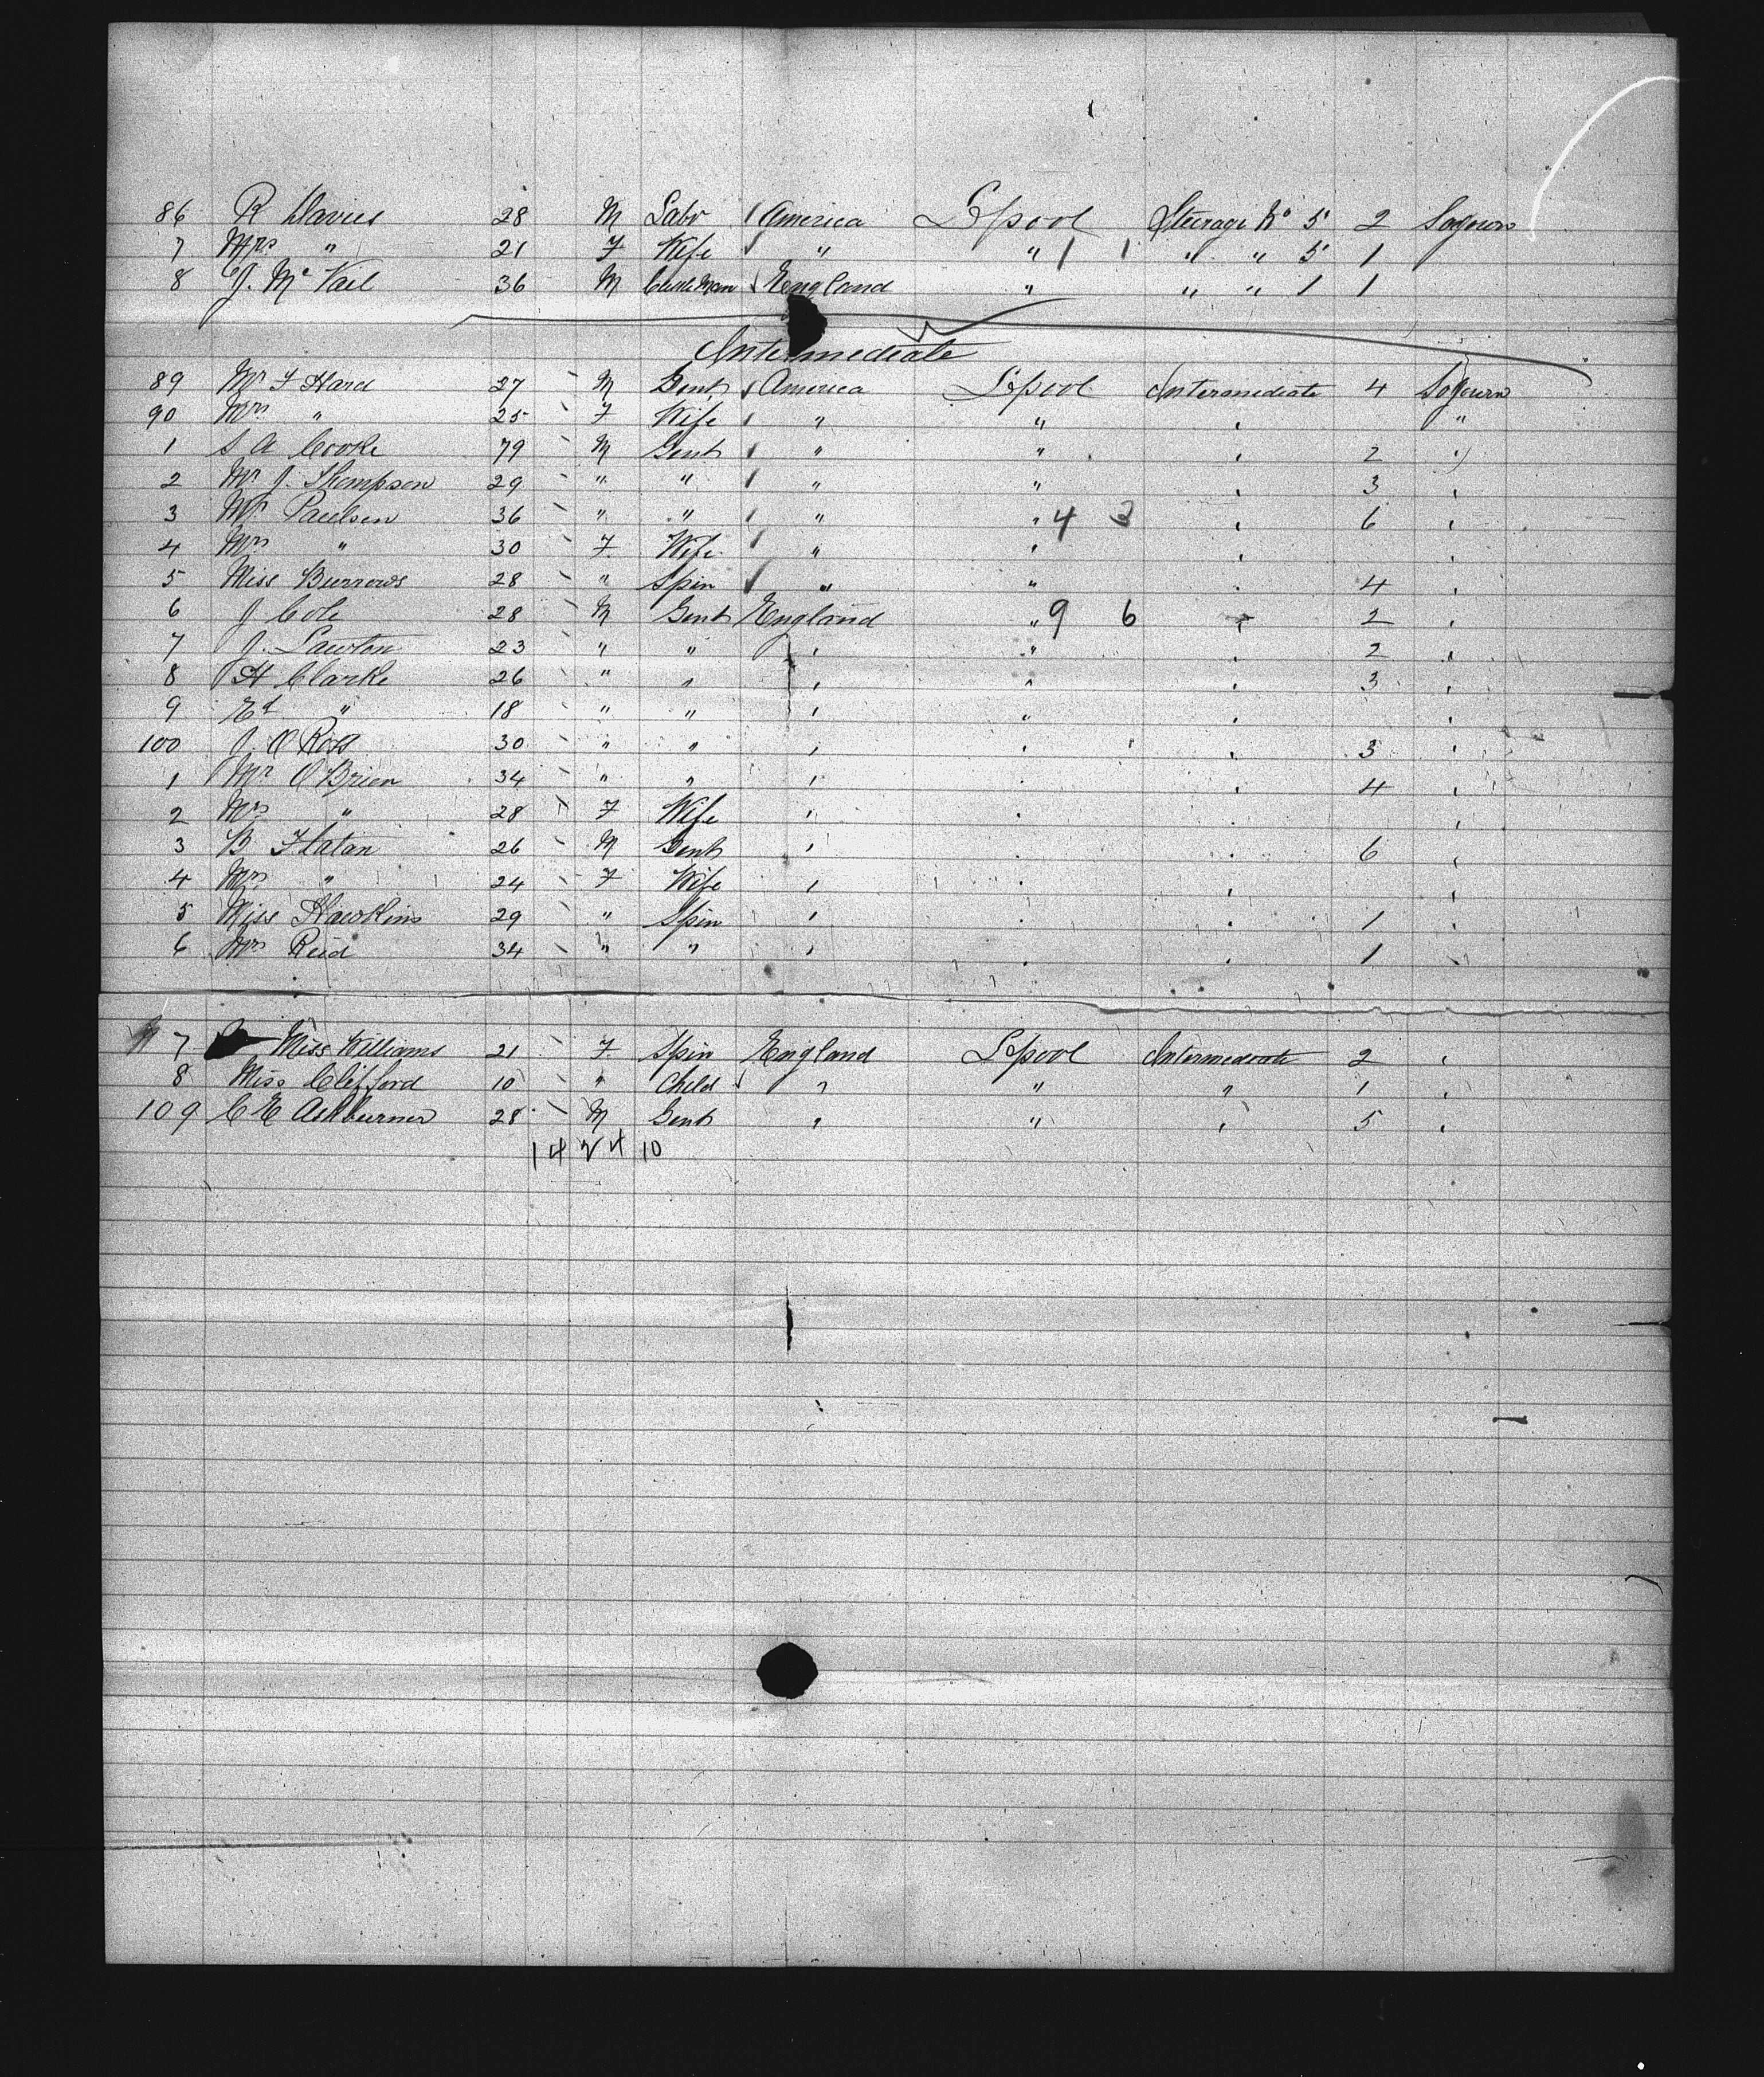 86 R Davies 28 M Labr America L'pool Steerage No 5 2 Sojourn
7 Mrs " 21 F Wife " " 1 1 " " 5 1
8 J. Mc Vail 36 M England " " " 1 1
Intermediate
89 Mr F Hard 27 M Gent America L'pool Intermediate 4 Sojourn
90 Mrs " 25 F Wife " " "
1 S A Cooke 79 M Gent " " 2 "
2 Mr J. Thompson 29 " " " " 3
3 Mr Paulsen 36 " " " " 4 3 6
4 Mrs " 30 F Wife " "
5 Miss Burrows 28 " Spin " " 4
6 J Cole 28 M Gent England " 9 6 " 2
7 J. Lawton 23 " " " 2
8 H Clarke 26 " " " 3
9 Ed " 18 " " "
100 J. O Ross 30 " " 3
1 Mr O'Brien 34 " " 4
2 Mrs " 28 F Wife
3 B Flatan 26 M Gent 6
4 Mrs " 24 F Wife
5 Miss Hawkins 29 " Spin 1
6 Mrs Reid 34 " " 1
7 Miss Williams 21 F Spin England L'pool Intermediate 2
8 Miss Clifford 10 " Child " " " 1
109 C E Ashburner 28 M Gent " " 5
14 24 10